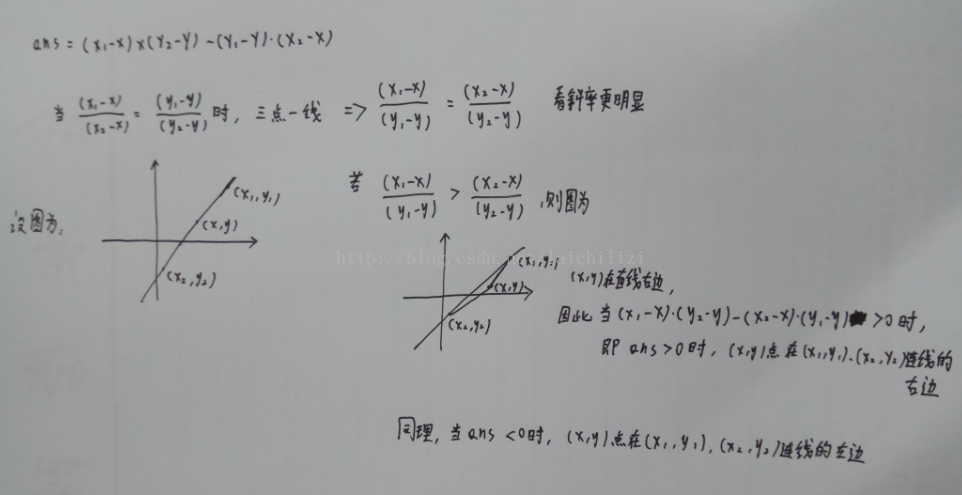 ans = (x₁-x)×(y₂-y)-(y₁-y)·(x₂-x)
当 (x₁-x)/(x₂-x) = (y₁-y)/(y₂-y) 时, 三点一线 => (x₁-x)/(y₁-y) = (x₂-x)/(y₂-y) 看斜率更明显
若 (x₁-x)/(y₁-y) > (x₂-x)/(y₂-y) ,则图为
设图为:
(x₁,y₁)
(x,y)
(x₂,y₂)
http://blog.csdn.net/haichilizi
(x₁,y₁)
(x,y)
(x₂,y₂)
(x,y)在直线右边,
因此当(x₁-x)·(y₂-y)-(x₂-x)·(y₁-y) >0时,
即 ans>0时, (x,y)点在(x₁,y₁)、(x₂,y₂)连线的
右边
同理, 当ans <0时, (x,y)点在(x₁,y₁), (x₂,y₂)连线的左边